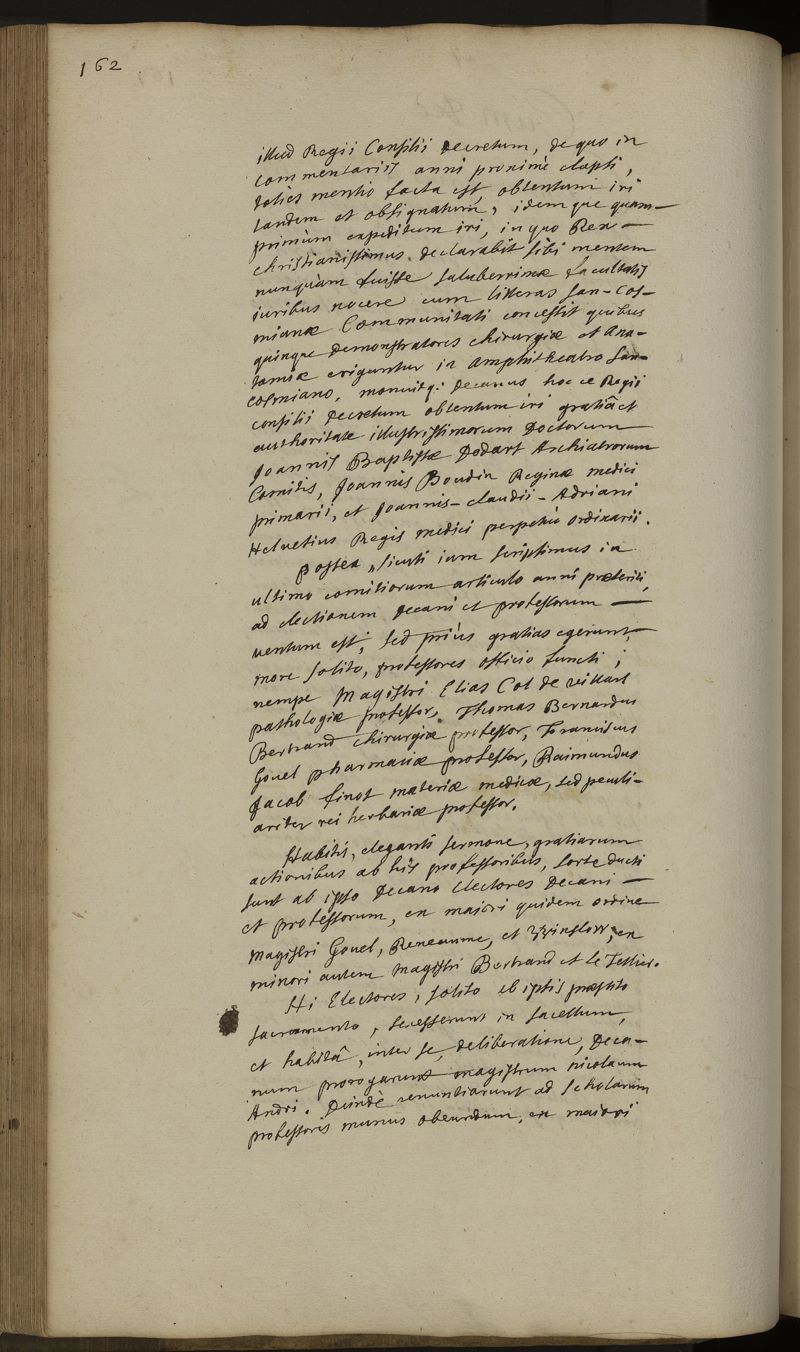 162
illud Regii Consilii decretum, de quo in
commentariis anni proximè elapsi,
toties mentio facta est, obtentum iri
tandem et obsignatum, idemque quam-
primùm expeditum iri, in quo Rex
christianissimus declarabit sibi mentem
nunquàm fuisse saluberrimæ facultatis
iuribus nocere cum litteras San-Cos-
mianæ Communitati concessit quibus
quinque demonstratores chirurgiæ et Ana-
tomiæ eriguntur in amphitheatro San-
cosmiano, monuitq; decanus hoc ce Regii
consilii decretum obtentum iri gratiâ et
authoritate illustrissimorum Doctorum
Joannis Baptistæ Dodart Archiatrorum
Comitis, Joannis Boudin Reginæ medici
primarii, et Joannis-claudii-Adriani
Helvetius Regis medici perpetuò ordinarii.
Postea, sicuti iam scripsimus in
ultimo comitiorum articulo anni præteriti,
ad electionem decani et professorum
ventum est; sed priùs gratias egerunt
more solito, professores officio functi;
nempe Magistri Elias Col de villars
pathologiæ professor, Thomas Bernardus
Bertrand chirurgiæ professor, Franciscus
Gouel pharmaciæ professor, Raimundus
Jacob finot materiæ medicæ, sed peculi-
ariter rei herbariæ professor.
Habitis, eleganti sermone, gratiarum
actionibus ab his professoribus, sorte ducti
sunt ab ipso Decano Electores Decani
et professorum, ex maiori quidem ordine
Magistri Gouel, Reneaume, et Winslow, ex
minori autem Magistri Bertrand et Le Tellier.
Hi Electores, solito ab ipsis præstito
sacramento, secesserunt in sacellum,
et habitâ, inter se, deliberatione, Deca-
num prorogarunt magistrum nicolaum
Andri. Deindè renuntiarunt ad scholarum
professoris munus obeundum, ex maiori